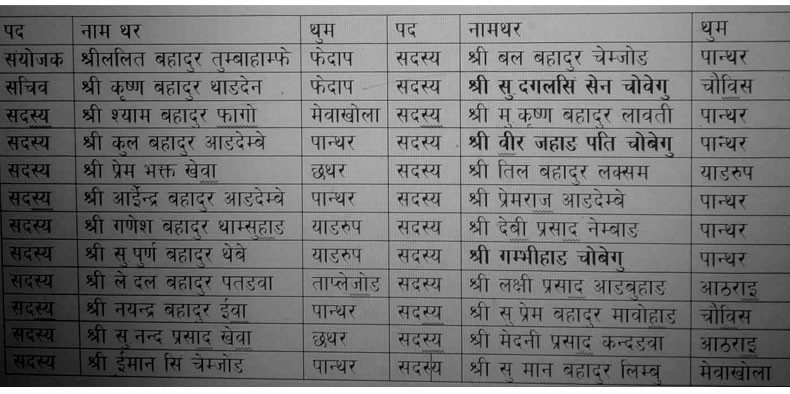 पद नाम थर थुम पद नामथर थुम
संयोजक श्रीललित बहादुर तुम्बाहाम्फे फेदाप सदस्य श्री बल बहादुर चेम्जोड पान्थर
सचिव श्री कृष्ण बहादुर थाडदेन फेदाप सदस्य श्री सु दगलसि सेन चोवेगु चौविस
सदस्य श्री श्याम बहादुर फागो मेवाखोला सदस्य श्री मु कृष्ण बहादुर लावती पान्थर
सदस्य श्री कुल बहादुर आडदेम्बे पान्थर सदस्य श्री वीर जहाड पति चोबेगु पान्थर
सदस्य श्री प्रेम भक्त खेवा छथर सदस्य श्री तिल बहादुर लक्सम याडरुप
सदस्य श्री आईन्द्र बहादुर आडदेम्बे पान्थर सदस्य श्री प्रेमराज आडदेम्बे पान्थर
सदस्य श्री गणेश बहादुर थाम्सुहाड याडरुप सदस्य श्री देबी प्रसाद नेम्बाड पान्थर
सदस्य श्री सु पुर्ण बहादुर थेबे याडरुप सदस्य श्री गम्भीहाड चोबेगु पान्थर
सदस्य श्री ले दल बहादुर पतडवा ताप्लेजोड सदस्य श्री लक्षी प्रसाद आडबुहाड आठराइ
सदस्य श्री नयन्द्र बहादुर ईवा पान्थर सदस्य श्री सु प्रेम बहादुर मावोहाड चौविस
सदस्य श्री सु नन्द प्रसाद खेवा छथर सदस्य श्री मेदनी प्रसाद कन्दडवा आठराइ
सदस्य श्री ईमान सि चेम्जोड पान्थर सदस्य श्री सु मान बहादुर लिम्बु मेवाखोला